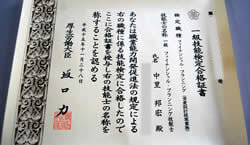 一級技能検定合格証書
検定職種 ファイナンシャル・プランニング
技能士の名称 一級ファイナンシャル・プランニング技能士
氏名 中里邦宏殿
あなたは職業能力開発促進法の規定による
右の職種に係る技能検定に合格したので
ここに合格証書を授与し右の技能士の名称を
称することを認める
厚生労働大臣 坂口力